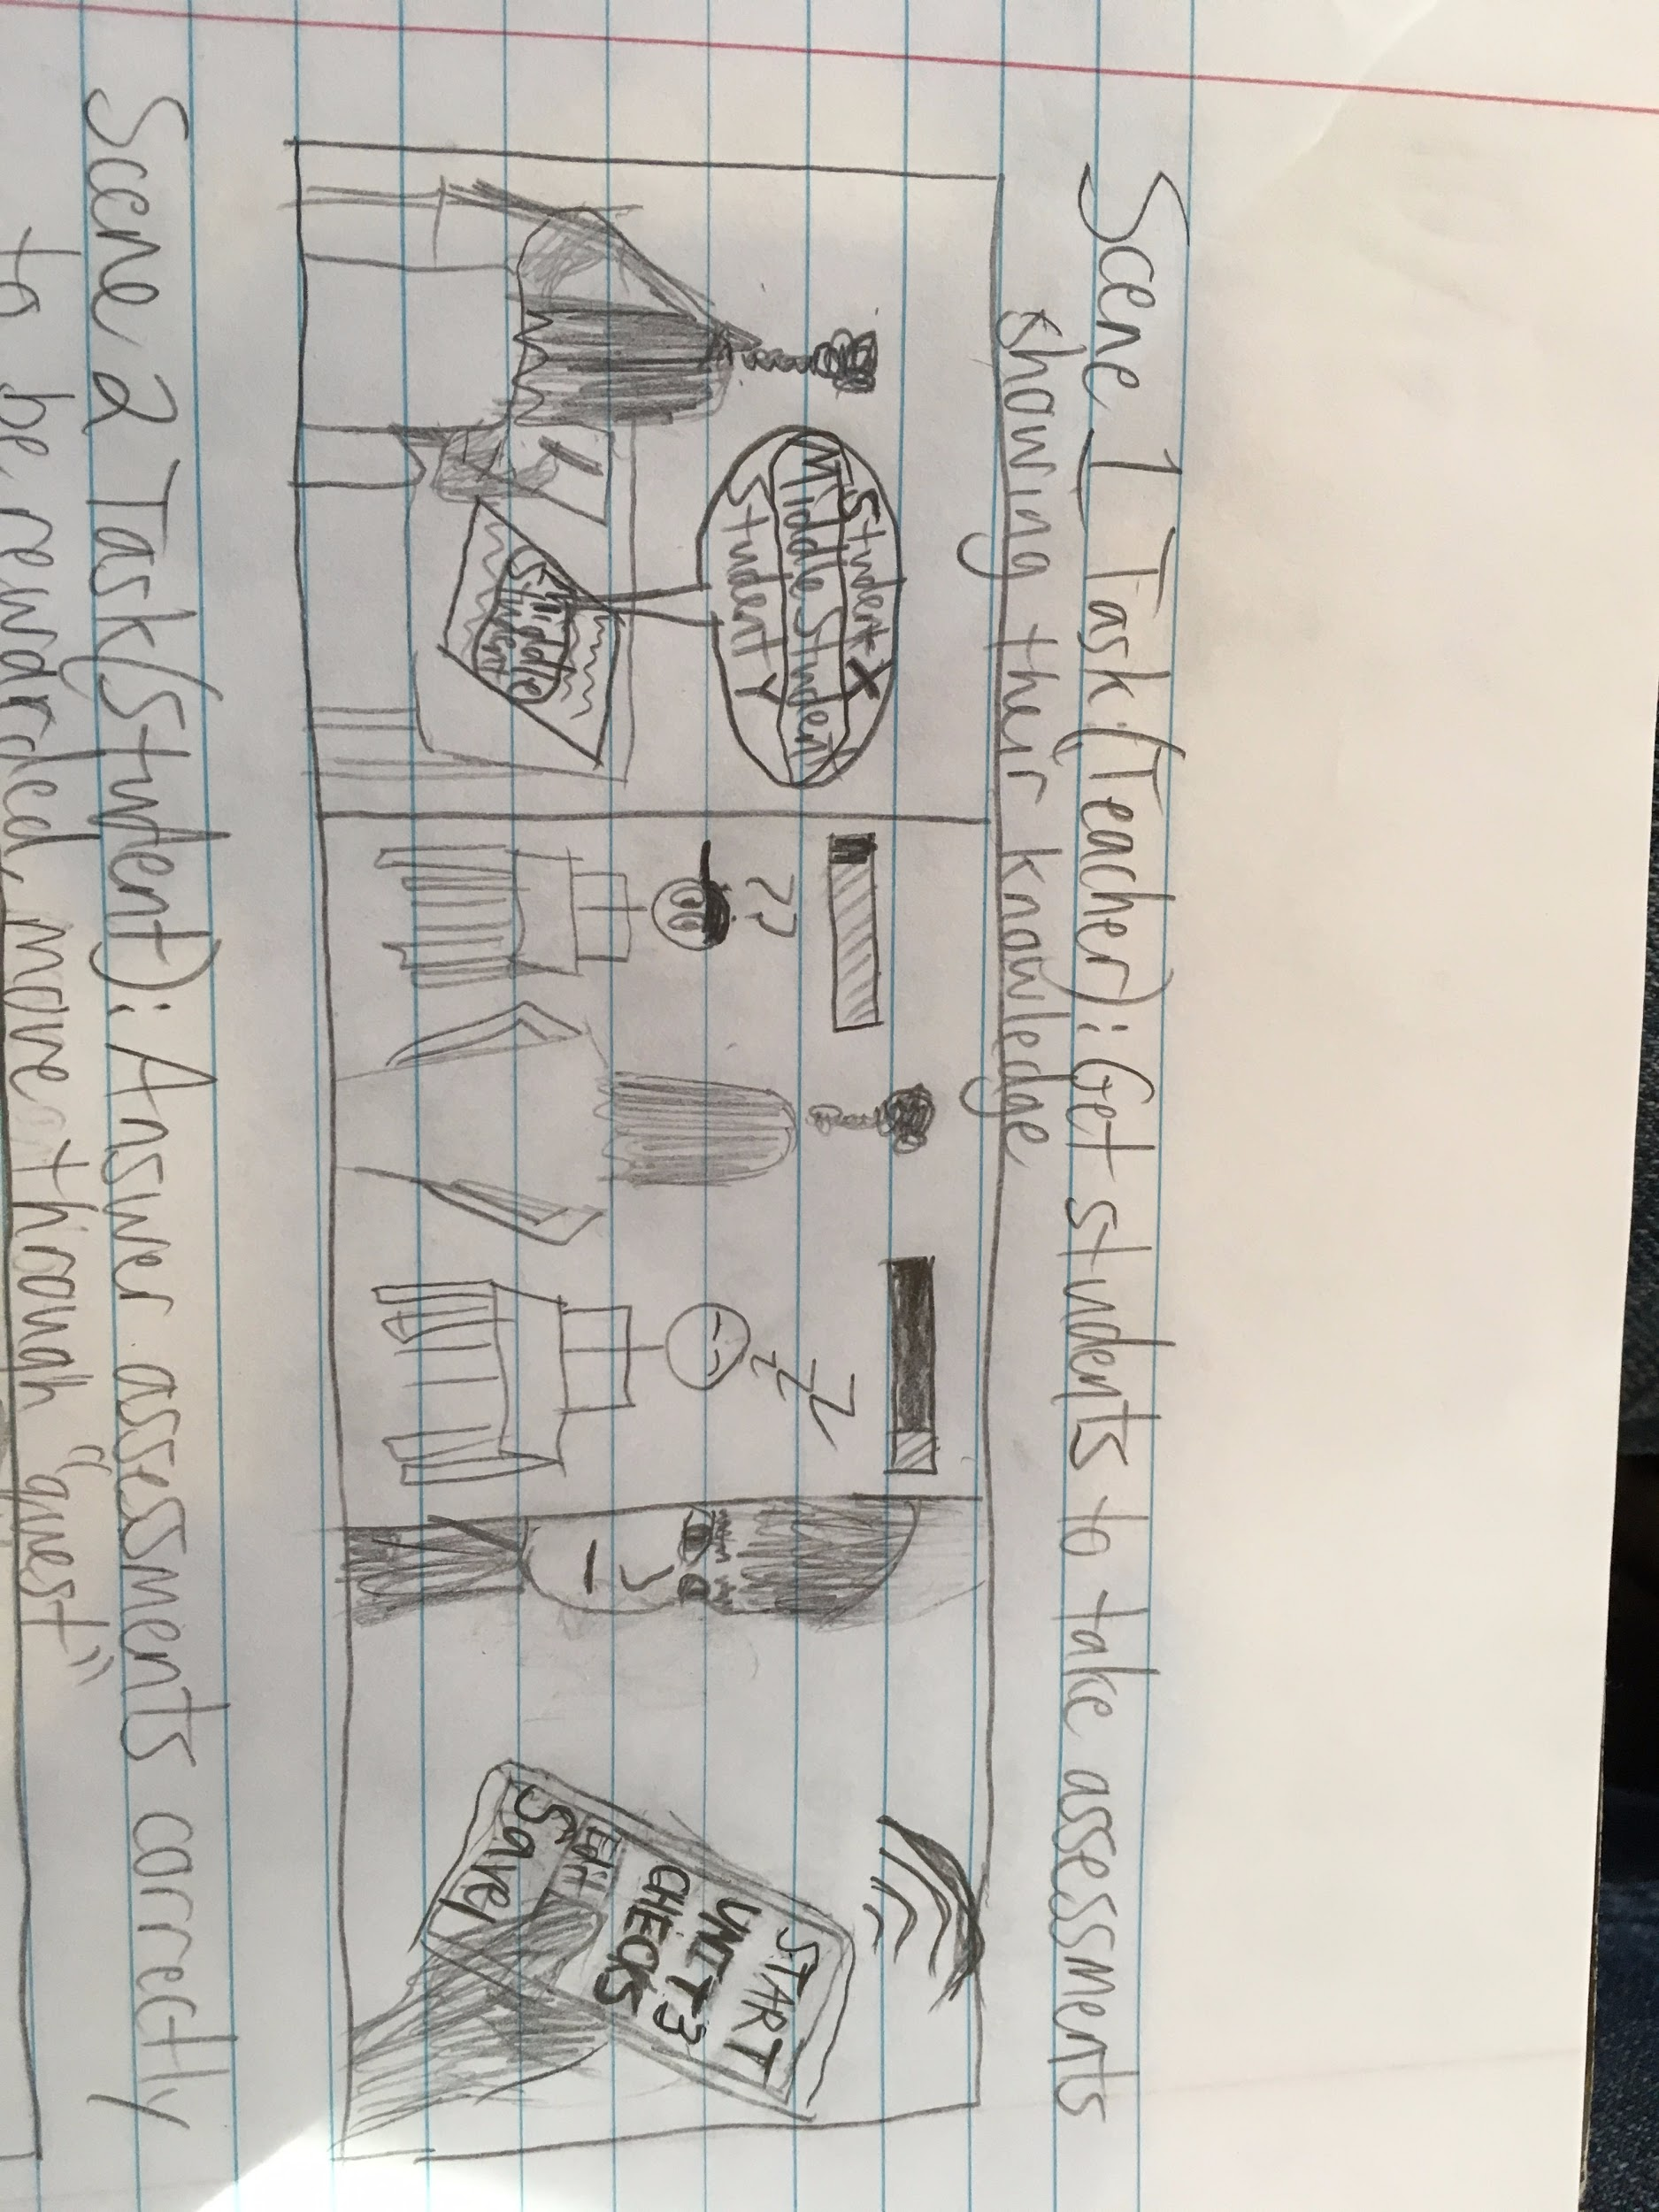 Scene 1 Task (Teacher): Get students to take assessments
showing their knowledge
Student X
Middle Student
Student Y
Middle
Student
??
Z
Z
Z
START
UNIT 3
CHECKS
Edit
Save
Scene 2 Task/Student): Answer assessments correctly
to be rewarded, move through "quest"